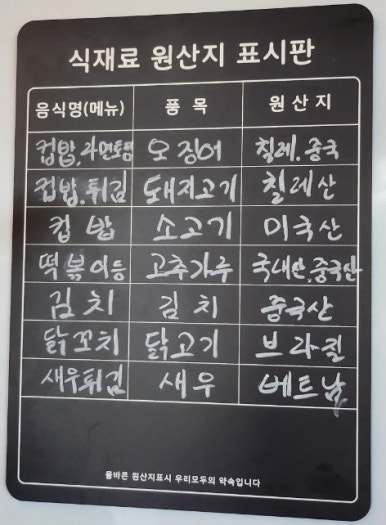 식재료 원산지 표시판
음식명(메뉴) 품 목 원 산 지
컵밥, 라면토핑 오징어 칠레, 중국
컵밥, 튀김 돼지고기 칠레산
컵 밥 소고기 미국산
떡볶이등 고추가루 국내산, 중국산
김 치 김 치 중국산
닭꼬치 닭고기 브라질
새우튀김 새 우 베트남
올바른 원산지표시 우리모두의 약속입니다